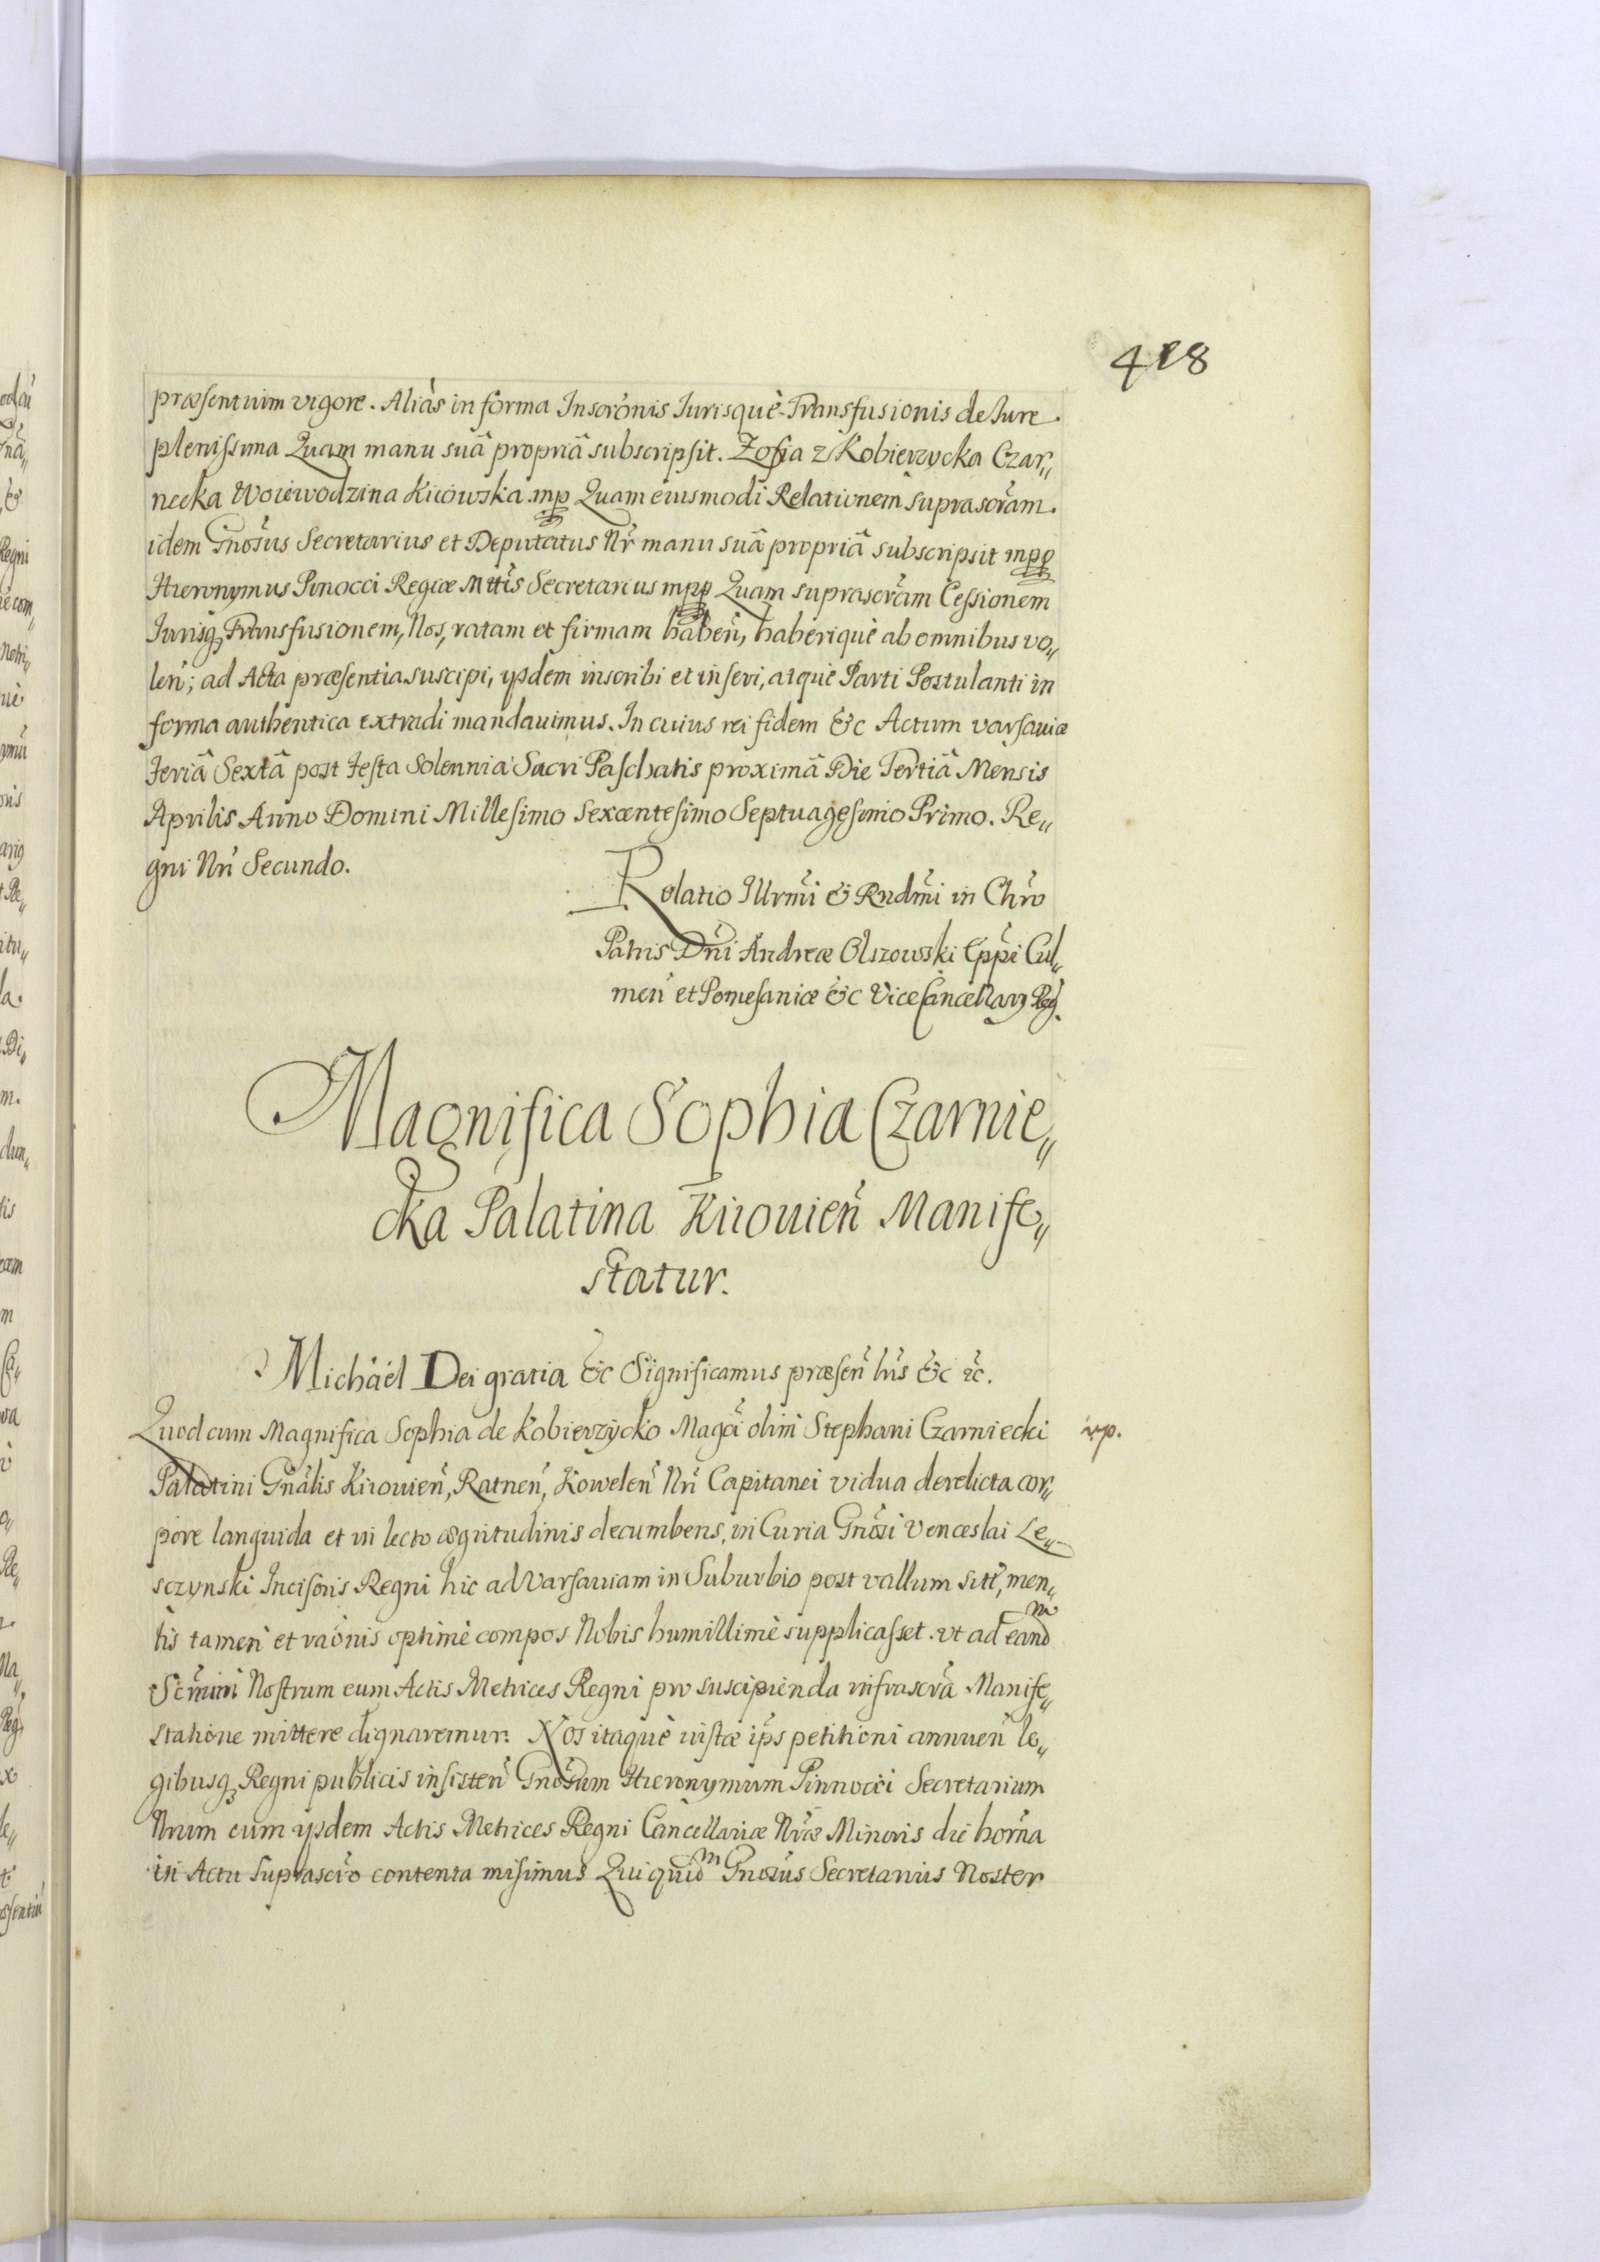 418
præsentium vigore. Aliàs in forma Inscrõnis Iurisquè Transfusionis de Iure
plenissima Quam manu suâ propriâ subscripsit. Zofia z Kobierzycka Czar„
necka Woiewodzina Kiiowska mp Quam eiusmodi Relationem suprascr̃am.
idem Gnõsus Secretarius et Deputatus Nr̃ manu suâ propriâ subscripsit mpp
Hieronymus Pinocci Regiæ Mttis Secretarius mpp Quam suprascr̃am Cessionem
Iurisq; Transfusionem, Nos, ratam et firmam habeñ, haberiquè ab omnibus vo„
leñ; ad Acta præsentia suscipi, ijsdem inscribi et inseri, atquè Parti Postulanti in
forma authentica extradi mandauimus. In cuius rei fidem &c Actum varsauiæ
Feriâ Sextâ post Festa Solennia Sacri Paschatis proximâ Die Tertiâ Mensis
Aprilis Anno Domini Millesimo Sexcentesimo Septuagesimo Primo. Re„
gni Nri Secundo.
Relatio Illrmi & Rndmi in Chr̃o
Patris Dñi Andreæ Olszowski Eppi Cul„
meñ et Pomesaniæ &c ViceCancellarij Reg.
Magnifica Sophia Czarnie„
cka Palatina Kiiouieñ Manife„
statur.
Michaël Dei gratia &c Significamus præseñ lris &c &c.
Quod cum Magnifica Sophia de Kobierzycko Magci olim Stephani Czarniecki
vp.
Palatini Gñalis Kiiouieñ, Ratneñ, Koweleñ Nri Capitanei vidua derelicta cor„
pore languida et in lecto ægritudinis decumbens, in Curia Gnõsi Venceslai Le„
sczynski Incisoris Regni hic ad Varsauiam in Suburbio post vallum sitt, men„
tis tamen et raõnis optimè compos Nobis humillimè supplicasset. vt ad eandm
Nostrum eum Actis Metrices Regni pro suscipienda infrascr̃a Manife„
statione mittere dignaremur. Nos itaquè iustæ ips petitioni annueñ le„
gibusq; Regni publicis insisteñ Gnõsum Hieronymum Pinnocci Secretarium
Nrum cum ijsdem Actis Metrices Regni Cancellariæ Nræ Minoris die horña
in Actu suprascr̃o contenta misimus Qui quidm Gnosus Secretarius Noster